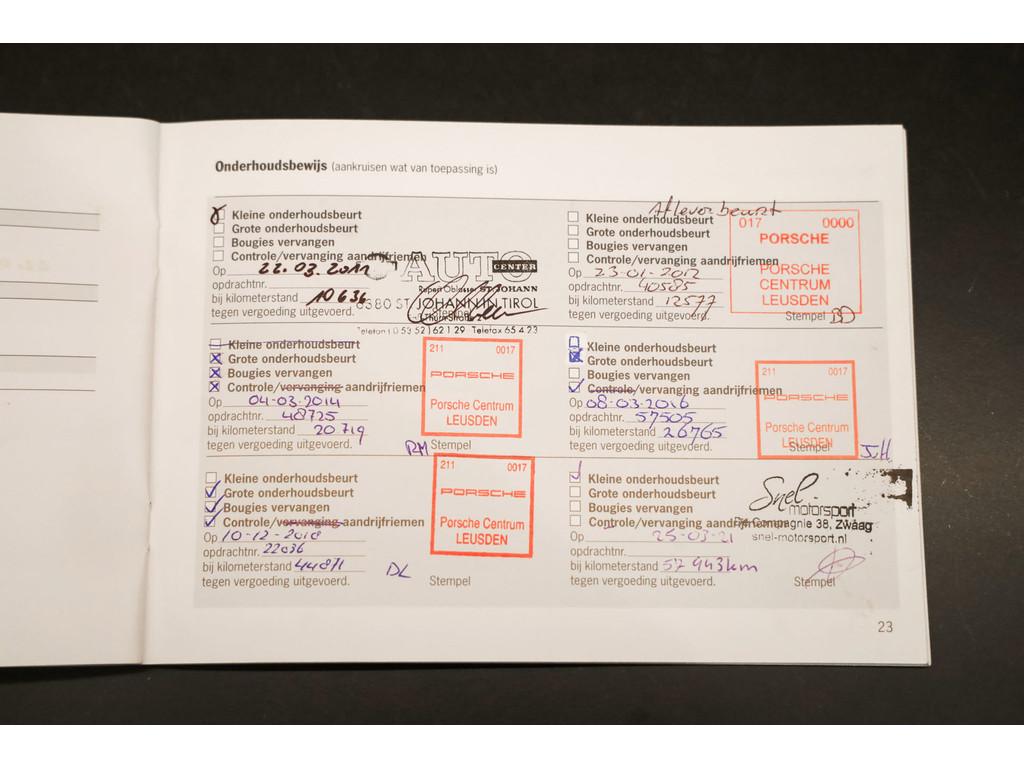 Onderhoudsbewijs (aankruisen wat van toepassing is)
Kleine onderhoudsbeurt
Grote onderhoudsbeurt
Bougies vervangen
Controle/vervanging aandrijfriemen
Op 22.03.2011
opdrachtnr.
bij kilometerstand 10636
tegen vergoeding uitgevoerd.
Stempel
AUTO
CENTER
ST. JOHANN
6380 ST. JOHANN IN TIROL
Telefon (0 53 52) 62 1 29 Telefax 65 4 23
Afleverbeurt
Kleine onderhoudsbeurt
Grote onderhoudsbeurt
Bougies vervangen
Controle/vervanging aandrijfriemen
Op 23-01-2012
opdrachtnr. 40585
bij kilometerstand 12577
tegen vergoeding uitgevoerd.
Stempel BD
017 0000
PORSCHE
PORSCHE
CENTRUM
LEUSDEN
Kleine onderhoudsbeurt
Grote onderhoudsbeurt
Bougies vervangen
Controle/vervanging aandrijfriemen
Op 04-03-2014
opdrachtnr. 48725
bij kilometerstand 20719
tegen vergoeding uitgevoerd.
RM Stempel
211 0017
PORSCHE
Porsche Centrum
LEUSDEN
Kleine onderhoudsbeurt
Grote onderhoudsbeurt
Bougies vervangen
Controle/vervanging aandrijfriemen
Op 08-03-2016
opdrachtnr. 57505
bij kilometerstand 26765
tegen vergoeding uitgevoerd.
Stempel
211 0017
PORSCHE
Porsche Centrum
LEUSDEN
Kleine onderhoudsbeurt
Grote onderhoudsbeurt
Bougies vervangen
Controle/vervanging aandrijfriemen
Op 10-12-2018
opdrachtnr. 22036
bij kilometerstand 44871
tegen vergoeding uitgevoerd.
DL
Stempel
211 0017
PORSCHE
Porsche Centrum
LEUSDEN
Kleine onderhoudsbeurt
Grote onderhoudsbeurt
Bougies vervangen
Controle/vervanging aandrijfriemen
Op 25-03-21
opdrachtnr.
bij kilometerstand 57943km
tegen vergoeding uitgevoerd.
Stempel
Snel
motorsport
De Compagnie 38, Zwaag
snel-motorsport.nl
23